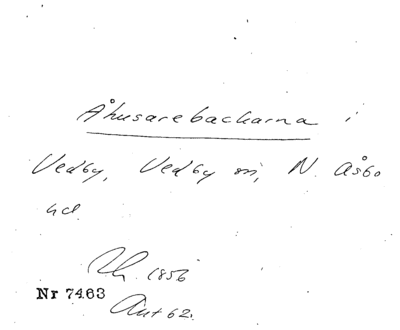 Åhusarebackarna i
Vedby, Vedby sn, N. Åsbo
hd.
1856
Nr 7463
Aut 62.